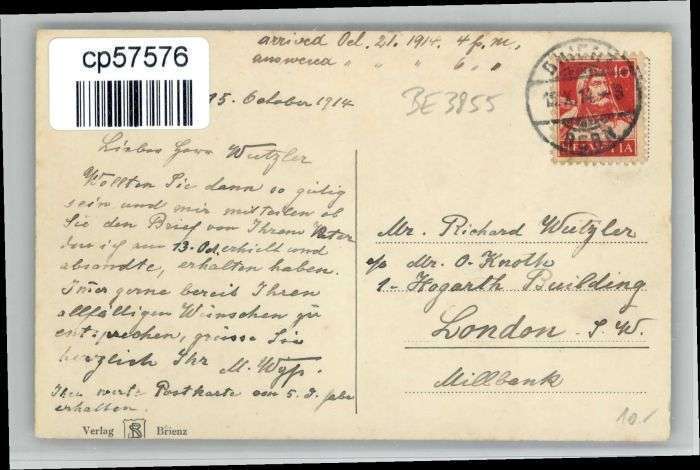 arrived Oct. 21. 1914. 4 p.m.
answered " " " 6 " "
cp57576
BE3855
15. October 1914
10
BRIENZ
BERN
HELVETIA
Liebes Herr Wützler
Wollten Sie dann so gütig
sein und mir mitteilen ob
Sie den Brief von Ihrem Vater
den ich am 13. Oct. erhielt und
absandte, erhalten haben.
Immer gerne bereit Ihren
allfälligen Wünschen zu
entsprechen, grüsse Sie
herzlich Ihr M. Wyss.
Ihre werte Postkarte vom 5. d. habe
erhalten.
Mr. Richard Wützler
c/o Mr. O. Knoth
1- Hogarth Building
London S.W.
Millbank
10.-
Verlag SR Brienz